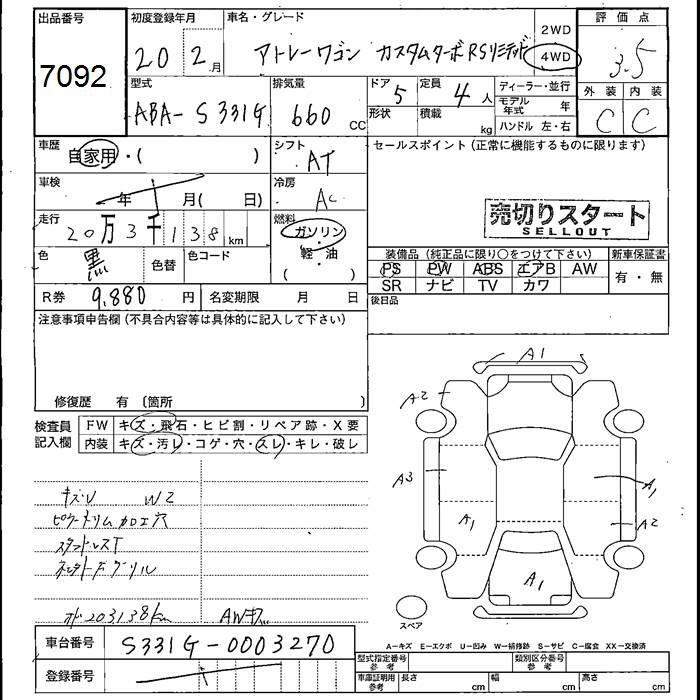 出品番号
7092
初度登録年月
20 2月
車名・グレード
アトレーワゴン カスタムターボRSリミテッド
2WD
4WD
評価点
3.5
外装 内装
C C
型式
ABA-S331G
排気量
660 CC
ドア
5
定員
4人
形状
積載
kg
ディーラー・並行
モデル年式 年
ハンドル 左・右
車歴
自家用・( )
シフト
AT
セールスポイント (正常に機能するものに限ります)
車検
年 月( 日)
冷房
AC
売切りスタート
SELLOUT
走行
20万3千138km
燃料
ガソリン
(軽・油)
色
黒
色替
色コード
装備品 (純正品に限り○をつけて下さい)
新車保証書
PS PW ABS エアB AW
SR ナビ TV カワ
有・無
後日品
R券 9,880 円
名変期限 月 日
注意事項申告欄 (不具合内容等は具体的に記入して下さい)
修復歴 有 〔箇所 〕
検査員記入欄
FW キズ・飛石・ヒビ割・リペア跡・X要
内装 キズ・汚レ・コゲ・穴・スレ・キレ・破レ
キズ・U W2
加工穴
オド203138km
車台番号 S331G-0003270
登録番号
A1
A2
A3
A1
A1
A2
A1
スペア
A-キズ E-エクボ U-凹み W-補修跡 S-サビ C-腐食 XX-交換済
型式指定番号 参考
類別区分番号 参考
車庫証明用 参考
長さ cm
幅 cm
高さ cm